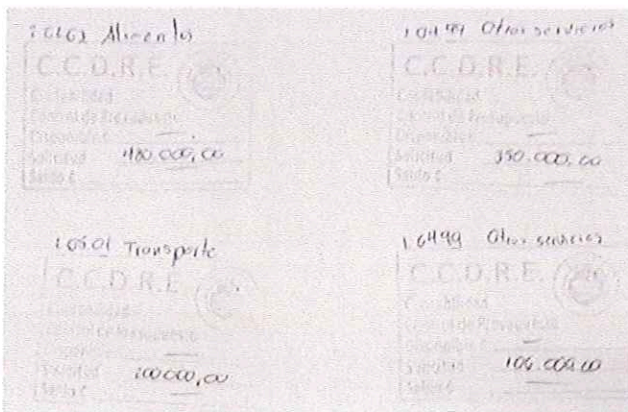 Alimentos
C.C.D.R.E.
Contabilidad
Control de Presupuesto
Disponible
Solicitud 480.000,00
Saldo ¢
1.04.99 Otros servicios
C.C.D.R.E.
Contabilidad
Control de Presupuesto
Disponible
Solicitud 350.000,00
Saldo ¢
1.05.01 Transporte
C.C.D.R.E.
Contabilidad
Control de Presupuesto
Disponible
Solicitud 200.000,00
Saldo ¢
1.04.99 Otros servicios
C.C.D.R.E.
Contabilidad
Control de Presupuesto
Disponible
Solicitud
Saldo ¢